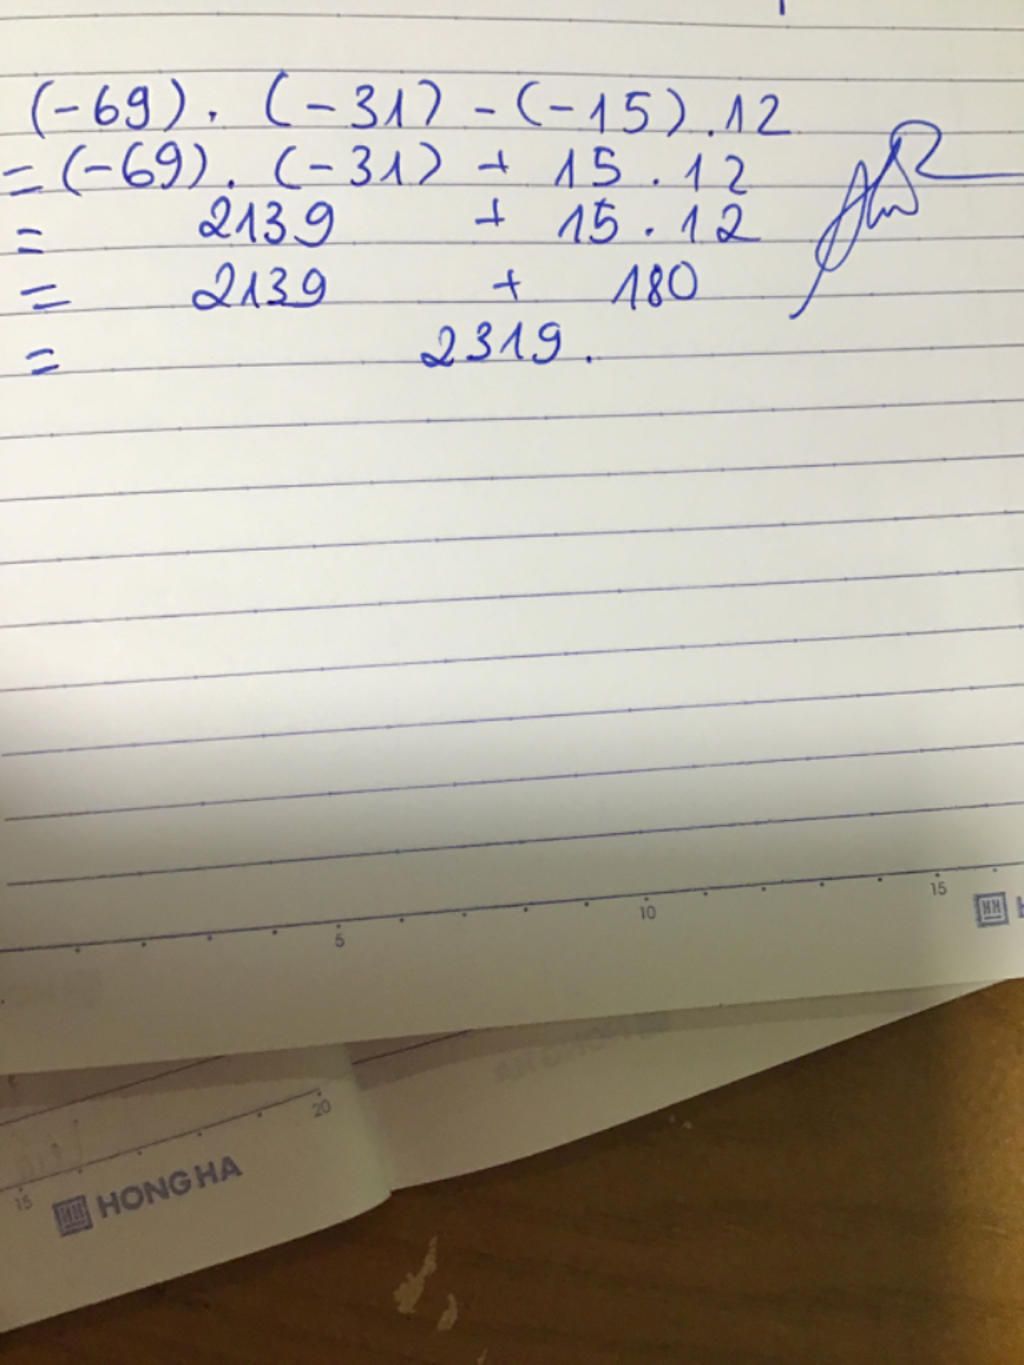 (-69). (-31) - (-15).12
= (-69). (-31) + 15.12
= 2139 + 15.12
= 2139 + 180
= 2319.
5 10 15
HH
20
15
HH HONG HA